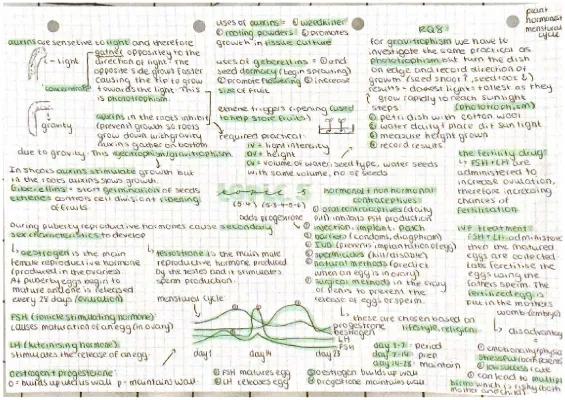 plant
hormones +
menstrual
cycle
auxins are sensitive to light and therefore
gather oppositely to the
direction of light. The
opposite side grows faster
causing the tip to grow
towards the light. This
is phototropism.
light
concentrate
gravity
auxins in the roots inhibit
(prevent) growth so roots
grow down with gravity
auxins gather on bottom
due to gravity. This
In shoots auxins stimulate growth but
in the roots auxins slows growth.
Gibberellins = start germination of seeds
ethene = controls cell division + ripening
of fruits.
during puberty reproductive hormones cause secondary
sex characteristics to develop
oestrogen is the main
female reproductive hormone
(produced in the ovaries)
At puberty eggs begin to
mature and one is released
every 28 days (ovulation)
testosterone is the main male
reproductive hormone produced
by the testes and it stimulates
sperm production.
FSH (follicle stimulating hormone)
causes maturation of an egg (in ovary)
LH (luteinising hormone)
stimulates the release of an egg
oestrogen + progesterone
o = builds up uterus wall p = maintain wall
uses of auxins = ① weedkiller
② rooting powders ③ promotes
growth in tissue culture
uses of gibberellins = ① end
seed dormancy (begin sprouting)
② promote flowering ③ increase
size of fruit
ethene triggers ripening (used
to help store fruits)
required practical
IV = light intensity
DV = height
CV = volume of water, seed type, water seeds
with same volume, no of seeds
menstrual cycle
progesterone
oestrogen
LH
FSH
day 1
day 14
day 28
① FSH matures egg
② LH releases egg
③ oestrogen builds up wall
④ progesterone maintains wall
hormonal + non hormonal
contraceptives
① oral contraceptives (daily
pill) inhibits FSH production
② injection, implant, patch
③ barriers (condoms, diaphragm)
④ IUD (prevents implantation of egg)
⑤ spermicides (kill/disable)
⑥ natural methods (predict
when an egg is in ovary)
⑦ surgical methods
to prevent the
release of eggs or sperm.
these are chosen based on
lifestyle, religion
day 1-7 = period
day 7-14 = prep
day 14-28 = maintain
RQ8:
for gravitropism we have to
investigate the same practical as
phototropism but turn the dish
on edge and record direction of
growth (seed shoot, seed root)
results = lowest light = tallest as they
grow rapidly to reach sunlight
steps (phototropism)
① petri dish with cotton wool
② water daily + place dif sun light
③ measure height grown
④ record results
the fertility drug
↳ FSH + LH are
administered to
increase ovulation,
therefore increasing
chances of
fertilisation
IVF treatment
FSH + LH administered
then the matured
eggs are collected
labs fertilise the
eggs using the
fathers sperm. The
fertilised egg is
put in the mothers
womb (embryo)
disadvantages
① emotionally/physically
stressful
② low success rate
③ can lead to multiple
births which is risky (both
mother and child)